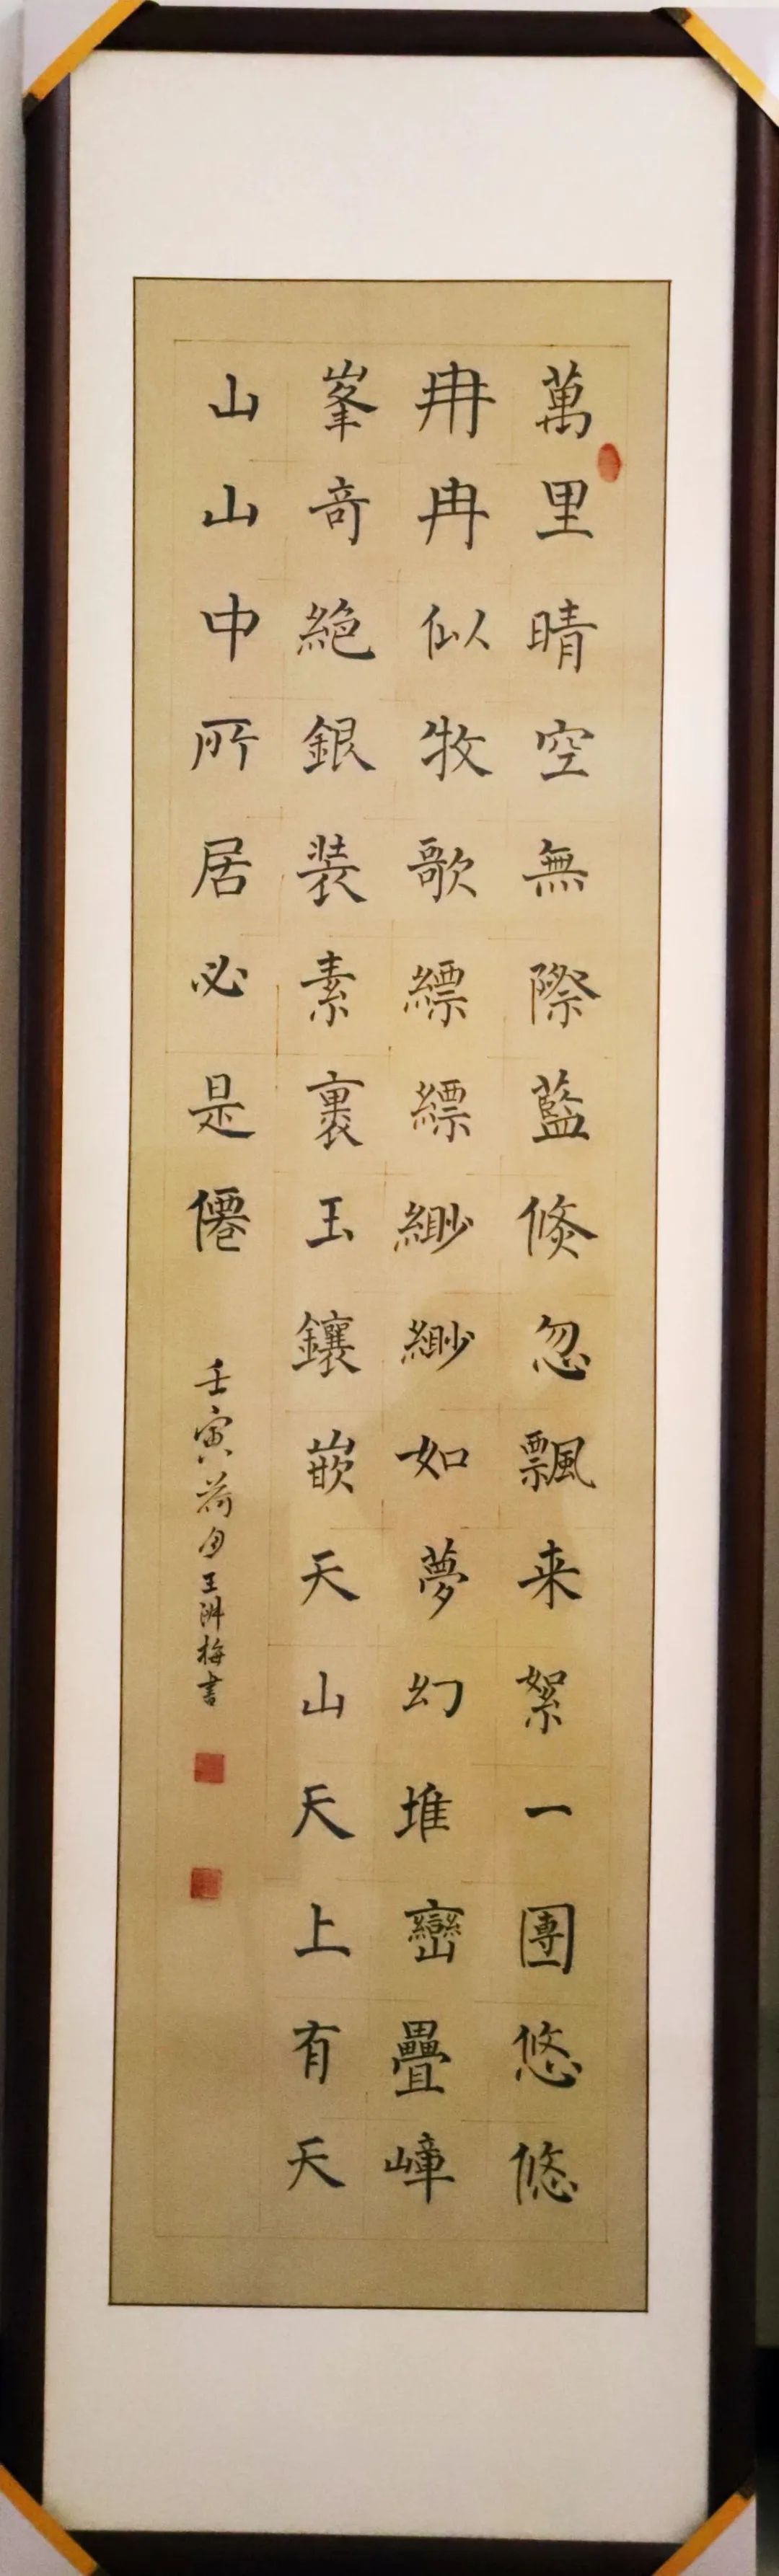 萬里晴空無際藍倏忽飄来絮一團悠悠
冉冉似牧歌縹縹緲緲如夢幻堆巒疊嶂
峯奇絕銀装素裹玉鑲嵌天山天上有天
山山中所居必是僊
壬寅荷月王渊梅書